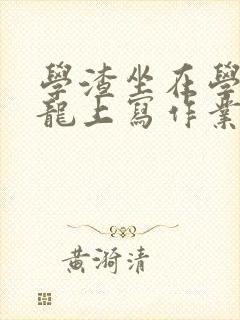 學渣坐在學
龍上寫作業
黃漪清